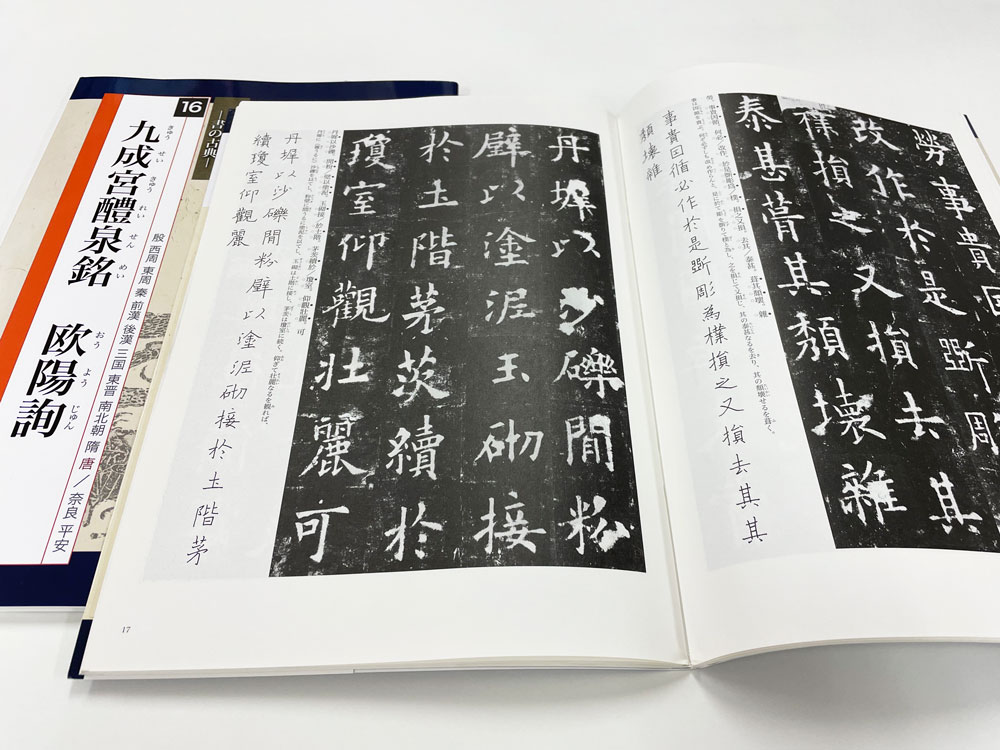 16
書の古典
九成宮醴泉銘 欧陽詢
きゅう せい きゅう れい せん めい おう よう じゅん
殷 西周 東周 秦 前漢 後漢 三国 東晋 南北朝 隋 唐／奈良 平安
勞事貴因
改作於是斵周
樸損之又損去其
泰甚葺其頽壊雜
事貴因循必作於是斵彫為樸損之又損去其其
頽壊雜
丹墀以沙礫間粉
壁以塗泥玉砌接
於土階茅茨續於
瓊室仰觀壯麗可
丹墀以沙礫間粉壁以塗泥砌接於土階茅
續瓊室仰觀麗
17